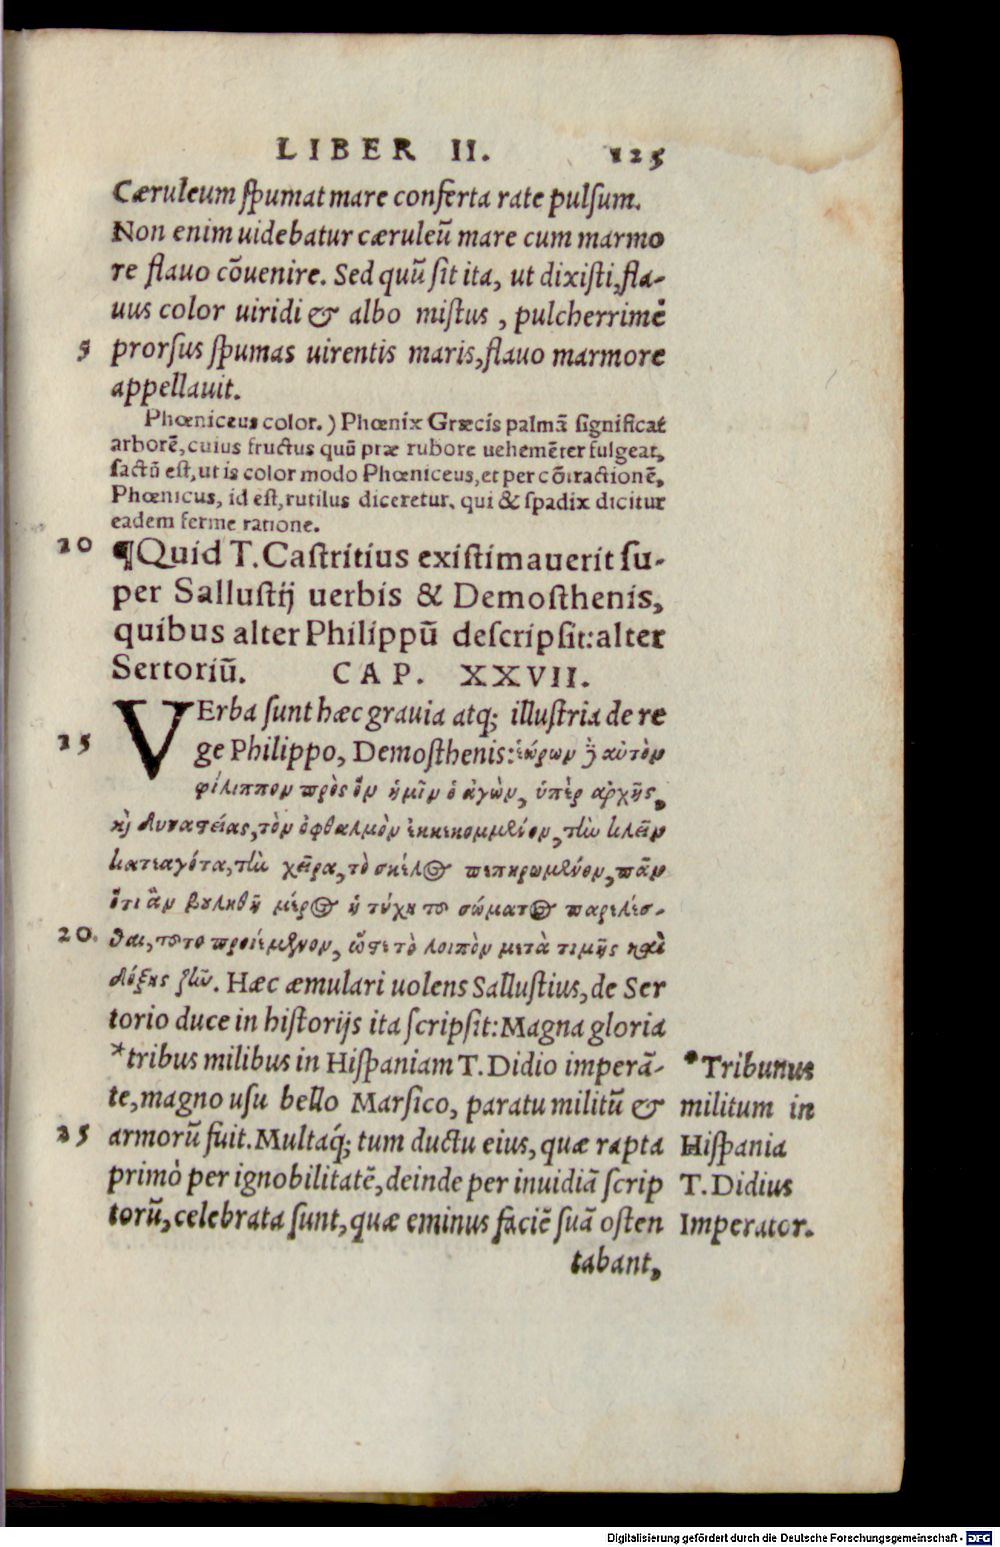 LIBER II. 125
Cæruleum spumat mare conferta rate pulsum.
Non enim uidebatur cæruleũ mare cum marmo
re flauo cõuenire. Sed quũ sit ita, ut dixisti, fla-
uus color uiridi & albo mistus, pulcherrimẽ
5 prorsus spumas uirentis maris, flauo marmore
appellauit.
Phœniceus color.) Phœnix Græcis palmã significat
arborẽ, cuius fructus quũ præ rubore uehemẽter fulgeat,
factũ est, ut is color modo Phœniceus, et per cõtractionẽ,
Phœnicus, id est, rutilus diceretur. qui & spadix dicitur
eadem ferme ratione.
10 ¶Quid T. Castritius existimauerit su-
per Sallustij uerbis & Demosthenis,
quibus alter Philippũ descripsit: alter
Sertoriũ. CAP. XXVII.
VErba sunt hæc grauia atq; illustria de re
15 ge Philippo, Demosthenis: ἑώρων δ' αὐτὸν
φίλιππον πρὸς ὃν ἡμῖν ὁ ἀγὼν, ὑπὲρ ἀρχῆς,
κỳ δυναστείας, τὸν ὀφθαλμὸν ἐκκεκομμένον, τὴν κλεῖν
κατεαγότα, τὴν χεῖρα, τὸ σκέλος πεπηρωμένον, πᾶν
ὅτι ἂν βουληθῆ μέρος ἡ τύχη τοῦ σώματος παρελέσ-
20. θαι, τοῦτο προιέμενον, ὥστε τὸ λοιπὸν μετὰ τιμῆς καὶ
δόξης ζῆν. Hæc æmulari uolens Sallustius, de Ser
torio duce in historijs ita scripsit: Magna gloria
*tribus milibus in Hispaniam T. Didio imperã-
te, magno usu bello Marsico, paratu militũ &
25 armorũ fuit. Multaq́; tum ductu eius, quæ rapta
primò per ignobilitatẽ, deinde per inuidiã scrip
torũ, celebrata sunt, quæ eminus faciẽ suã osten
tabant,
*Tribunus
militum in
Hispania
T. Didius
Imperator.
Digitalisierung gefördert durch die Deutsche Forschungsgemeinschaft - DFG